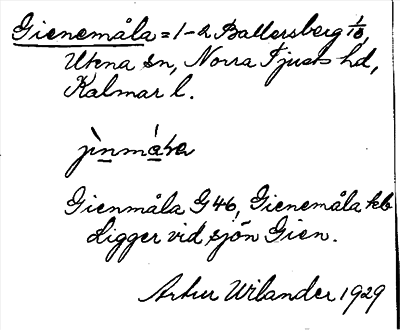 Gienemåla = 1-2 Ballersberg 1/8,
Utena sn, Norra Tjusts hd,
Kalmar l.
jìnmá
Gienmåla G46, Gienemåla kb
Ligger vid sjön Gien.
Artur Wilander 1929